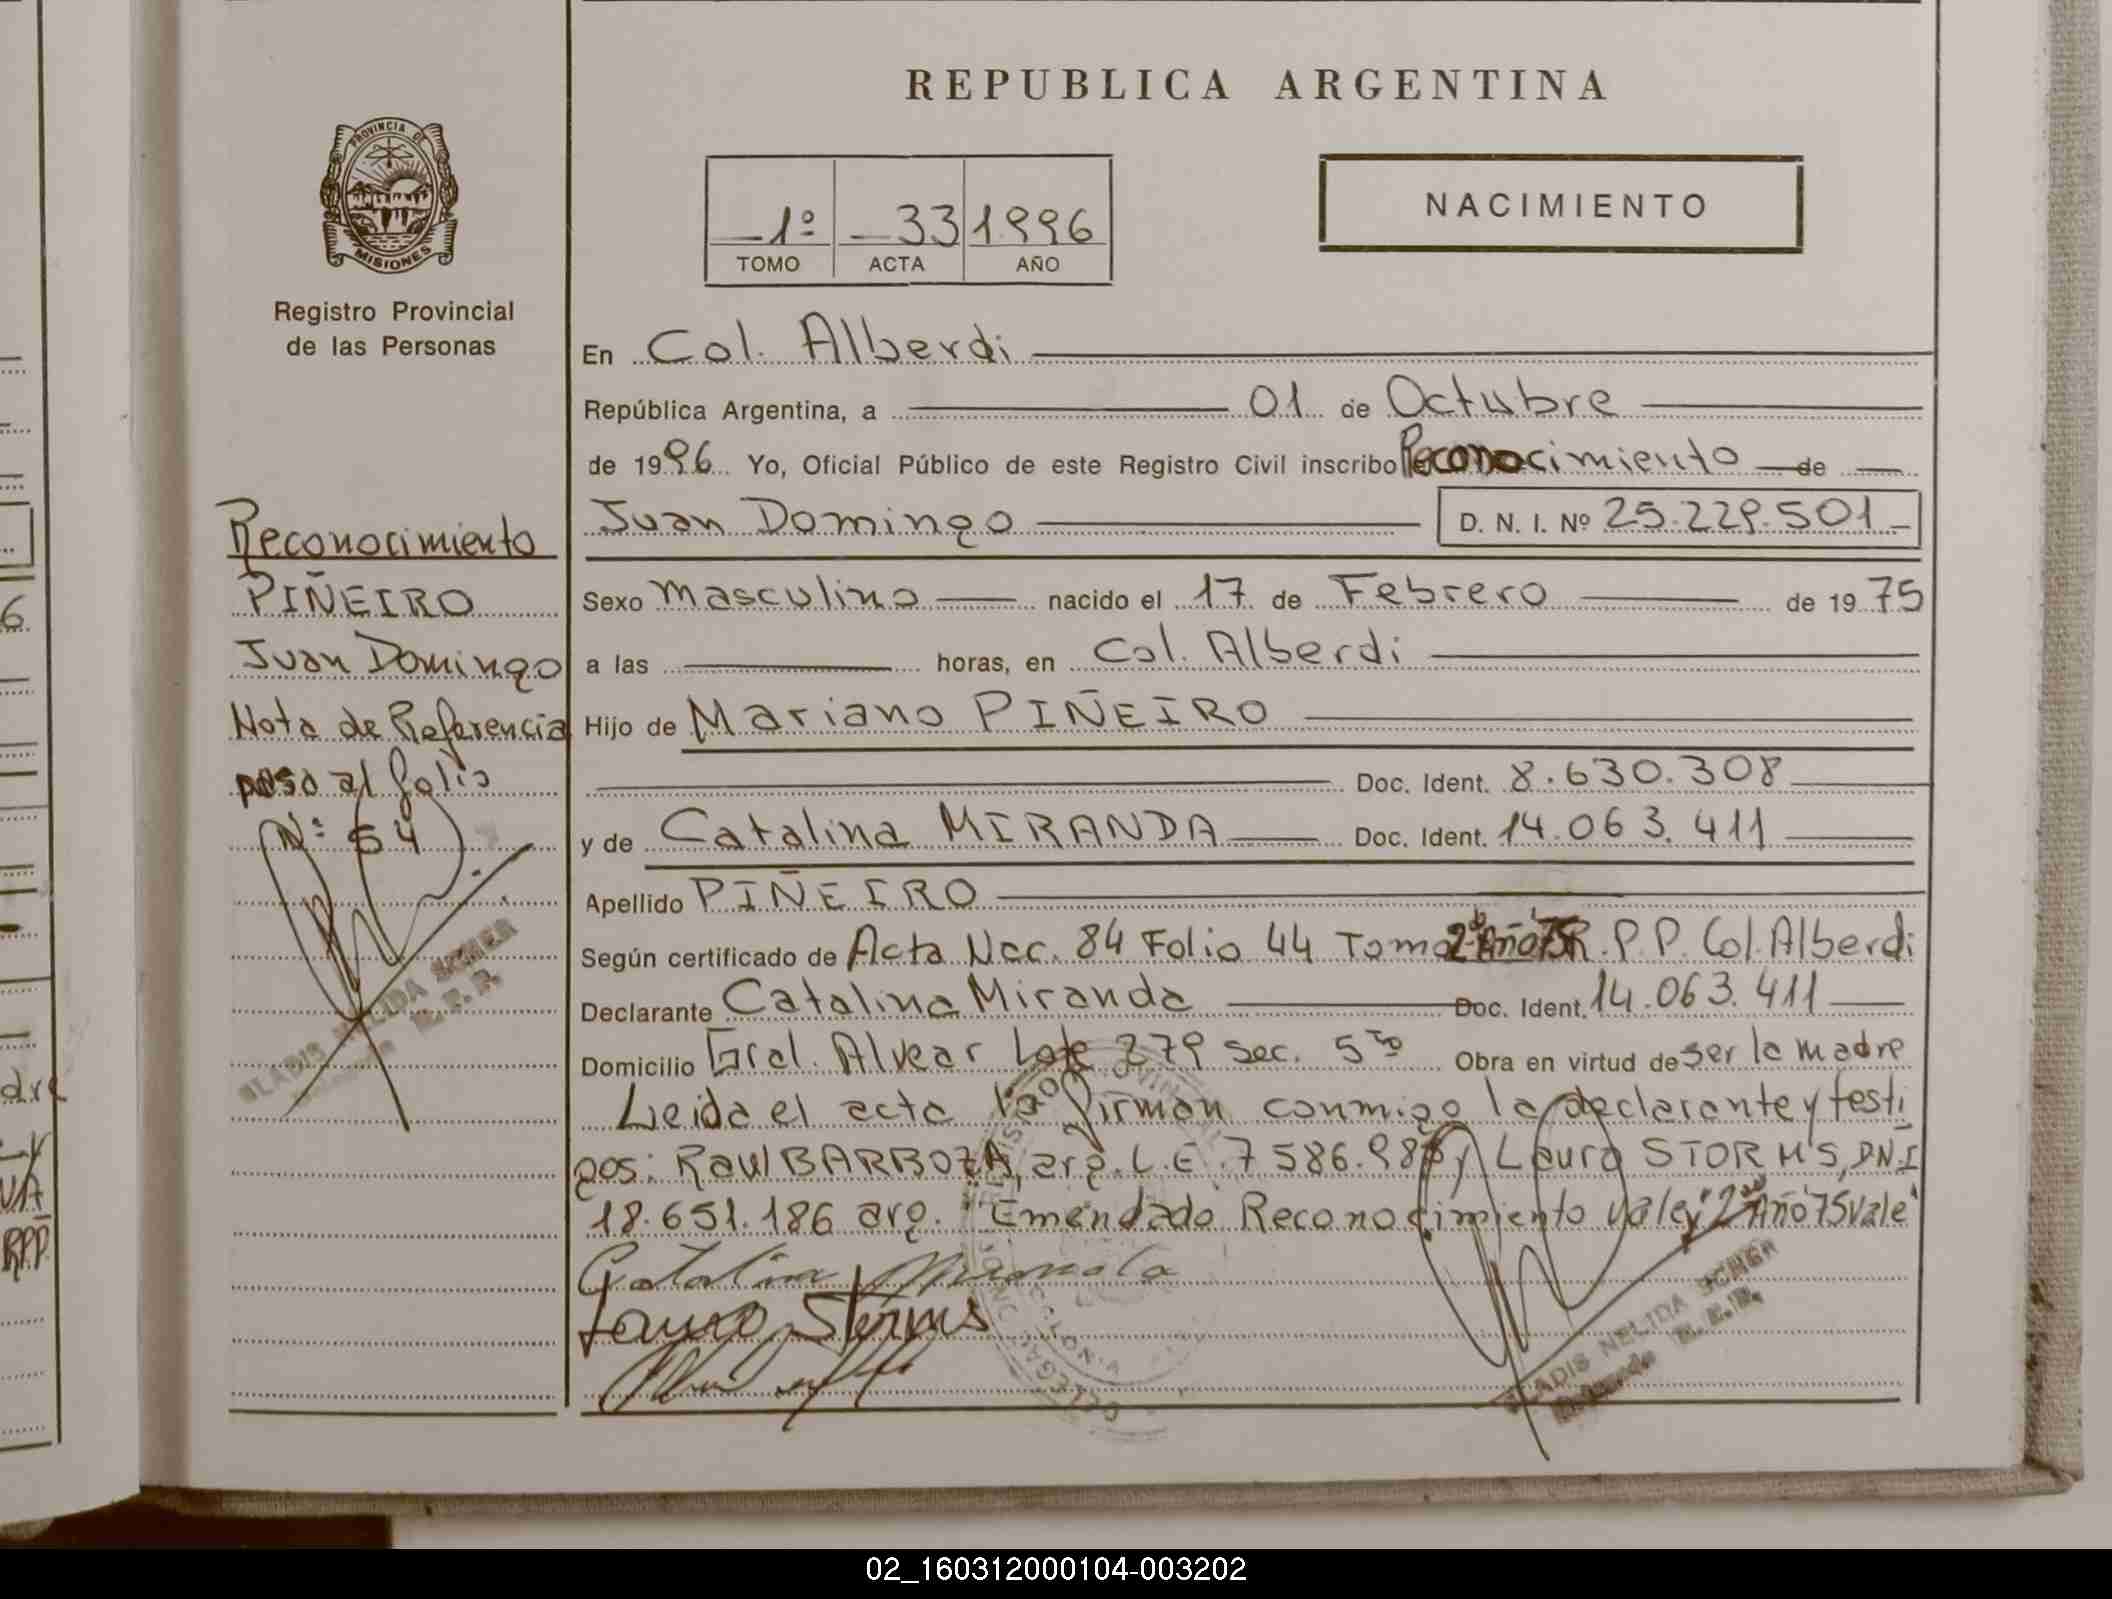 REPUBLICA ARGENTINA
PROVINCIA DE
MISIONES
Registro Provincial
de las Personas
1º 33 1996
TOMO ACTA AÑO
NACIMIENTO
En Col. Alberdi
República Argentina, a 01 de Octubre
de 1996 Yo, Oficial Público de este Registro Civil inscribo Reconocimiento de
Juan Domingo D. N. I. Nº 25.229.501
Sexo masculino nacido el 17 de Febrero de 1975
a las horas, en Col. Alberdi
Hijo de Mariano PIÑEIRO
Doc. Ident. 8.630.308
y de Catalina MIRANDA Doc. Ident. 14.063.411
Apellido PIÑEIRO
Según certificado de Acta Nac. 84 Folio 44 Tomo 2º Año 75 R.P.P. Col. Alberdi
Declarante Catalina Miranda Doc. Ident. 14.063.411
Domicilio Gral. Alvear Lote 279 sec. 5ta Obra en virtud de ser la madre
Leida el acta la firman conmigo la declarante y testi
gos: Raul BARBOZA, arg. L.E. 7 586.98 y Laura STORMS, DNI
18.651.186 arg. "Emendado Reconocimiento vale y "2do Año 75 vale"
Catalina Miranda
Laura Storms
Reconocimiento
PIÑEIRO
Juan Domingo
Nota de Referencia
paso al folio
Nº 64
GLADIS NELIDA
GLADIS NELIDA
02_160312000104-003202